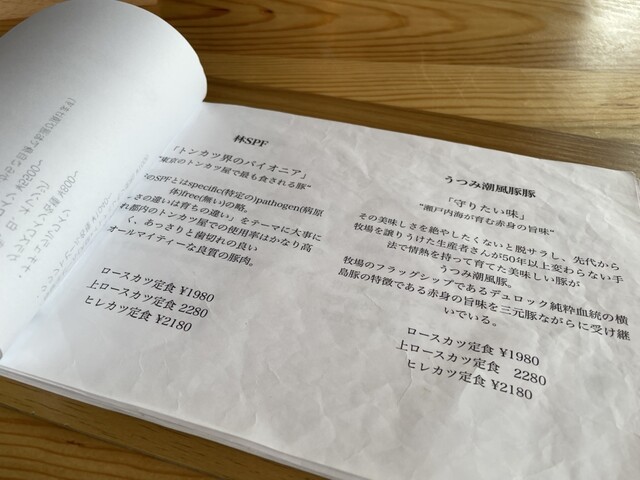 林SPF
「トンカツ界のパイオニア」
"東京のトンカツ屋で最も食される豚"
のSPFとはspecific(特定の)pathogen(病原
体)free(無い)の略。
さの違いは育ちの違い」をテーマに大事に
れ都内のトンカツ屋での使用率はかなり高
く、あっさりと歯切れの良い
オールマイティーな良質の豚肉。
ロースカツ定食 ¥1980
上ロースカツ定食 2280
ヒレカツ定食 ¥2180
うつみ潮風豚豚
「守りたい味」
"瀬戸内海が育む赤身の旨味"
その美味しさを絶やしたくないと脱サラし、先代から
牧場を譲りうけた生産者さんが50年以上変わらない手
法で情熱を持って育てた美味しい豚が
うつみ潮風豚。
牧場のフラッグシップであるデュロック純粋血統の横
島豚の特徴である赤身の旨味を三元豚ながらに受け継
いでいる。
ロースカツ定食 ¥1980
上ロースカツ定食 2280
ヒレカツ定食 ¥2180